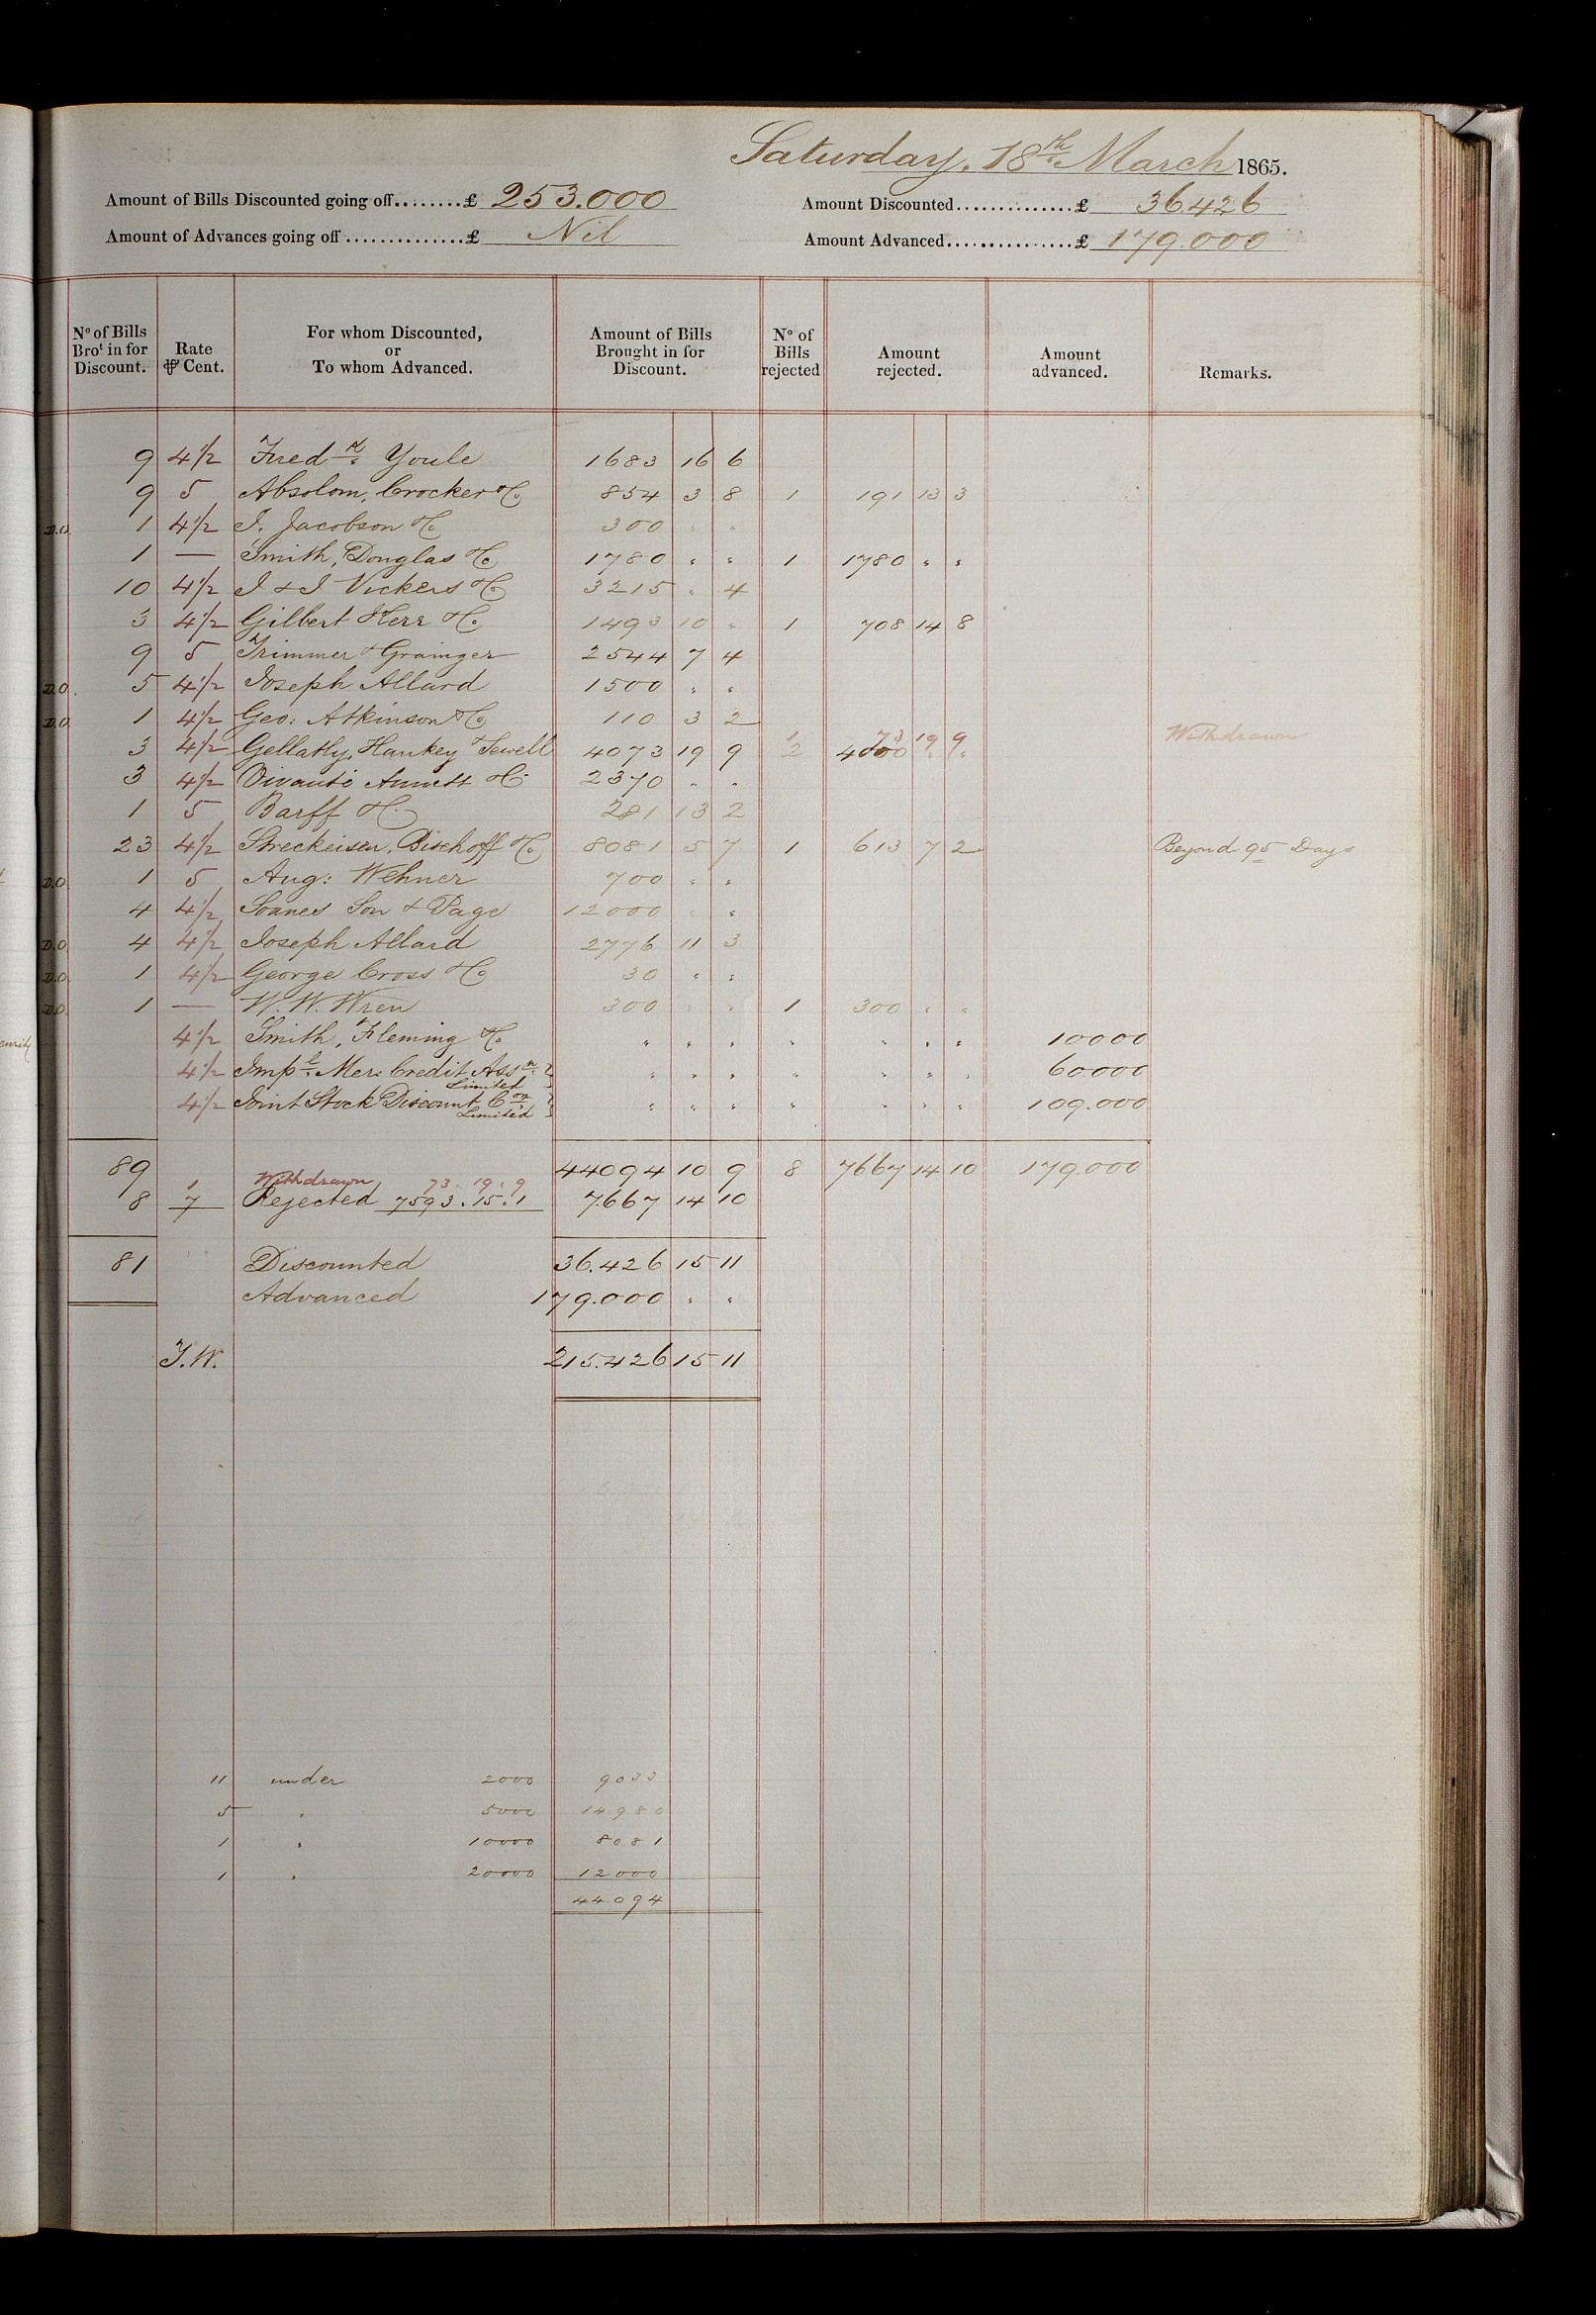 Saturday, 18th March 1865.
Amount of Bills Discounted going off........£ 253.000 Amount Discounted..............£ 36426
Amount of Advances going off..............£ Nil Amount Advanced................£ 179.000
No of Bills Brot in for Discount. Rate ⅌ Cent. For whom Discounted, or To whom Advanced. Amount of Bills Brought in for Discount. No of Bills rejected Amount rejected. Amount advanced. Remarks.
9 4½ Fredk Youle 1683 16 6
9 5 Absolom, Crocker & Co 854 3 8 1 191 13 3
D.O. 1 4½ I. Jacobson & Co 300 " "
1 — Smith, Douglas & Co 1780 " " 1 1780 " "
10 4½ I & I Vickers & Co 3215 " 4
3 4½ Gilbert Kerr & Co 1493 10 " 1 708 14 8
9 5 Trimmer & Grainger 2544 7 4
D.O. 5 4½ Joseph Allard 1500 " "
D.O. 1 4½ Geo: Atkinson & Co 110 3 2
1 73 19 9 Withdrawn
3 4½ Gellatly, Hankey & Sewell 4073 19 9 2 4000 " "
3 4½ & Co 2370 " "
1 5 Barff & Co 281 13 2
23 4½ Streckeisen, Bischoff & Co 8081 5 7 1 613 7 2 Beyond 95 Days
D.O. 1 5 Aug: Wehner 700 " "
4 4½ Soanes Son & Page 12000 " "
D.O. 4 4½ Joseph Allard 2776 11 3
D.O. 1 4½ George Cross & Co 30 " "
D.O. 1 — W. W. Wren 300 " " 1 300 " "
4½ Smith, Fleming & Co " " " " " " " 10000
4½ Impl Mer: Credit Assn Limited " " " " " " " 60.000
4½ Joint Stock Discount Con Limited " " " " " " " 109.000
89 44094 10 9 8 7667 14 10 179.000
1 Withdrawn 73. 19. 9
8 7 Rejected 7593. 15. 1 7.667 14 10
81 Discounted 36.426 15 11
Advanced 179.000 " "
T.W. 215.426 15 11
11 under 2000 9033
5 " 5000 14980
1 " 10000 8081
1 " 20000 12000
44.094